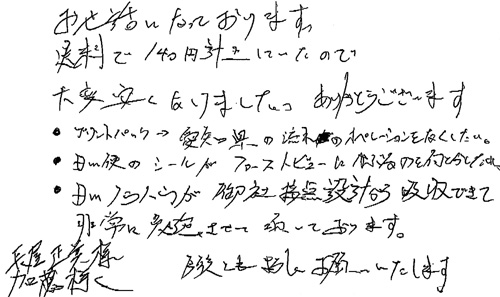 お世話になっております。
送料で140円計上していたので
大変安くなりましたっ ありがとうございます
• プリントパック→愛知県の流れのオペレーションをなくしたい。
• DM便のシールがファーストビューに
• DMノウハウが御社接点設計から吸収できて
非常に勉強させて頂いております。
様
加藤様く 今後とも宜しくお願いいたします